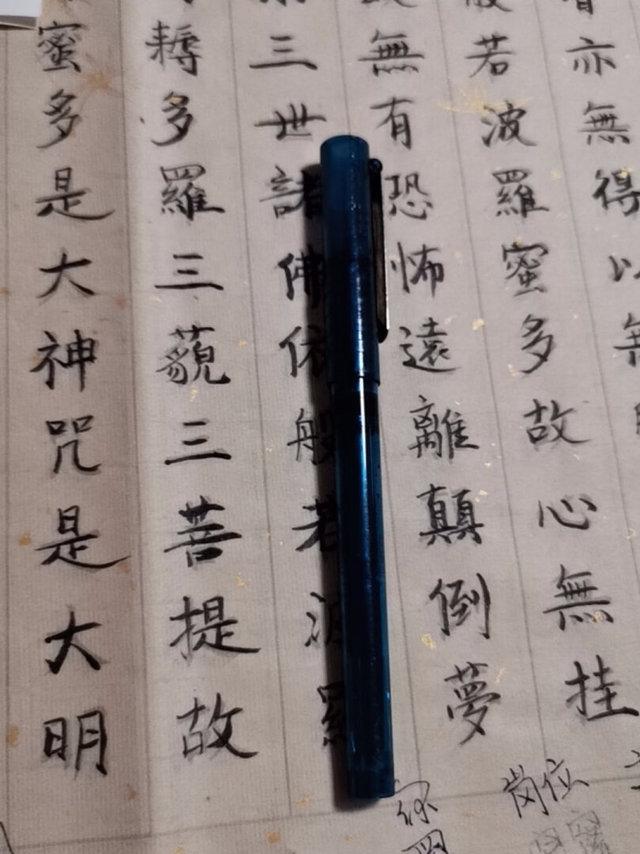 亦無得以無
般若波羅蜜多故心無挂
無有恐怖遠離顛倒夢
三世諸佛依般若波羅
耨多羅三藐三菩提故
蜜多是大神咒是大明
岗位